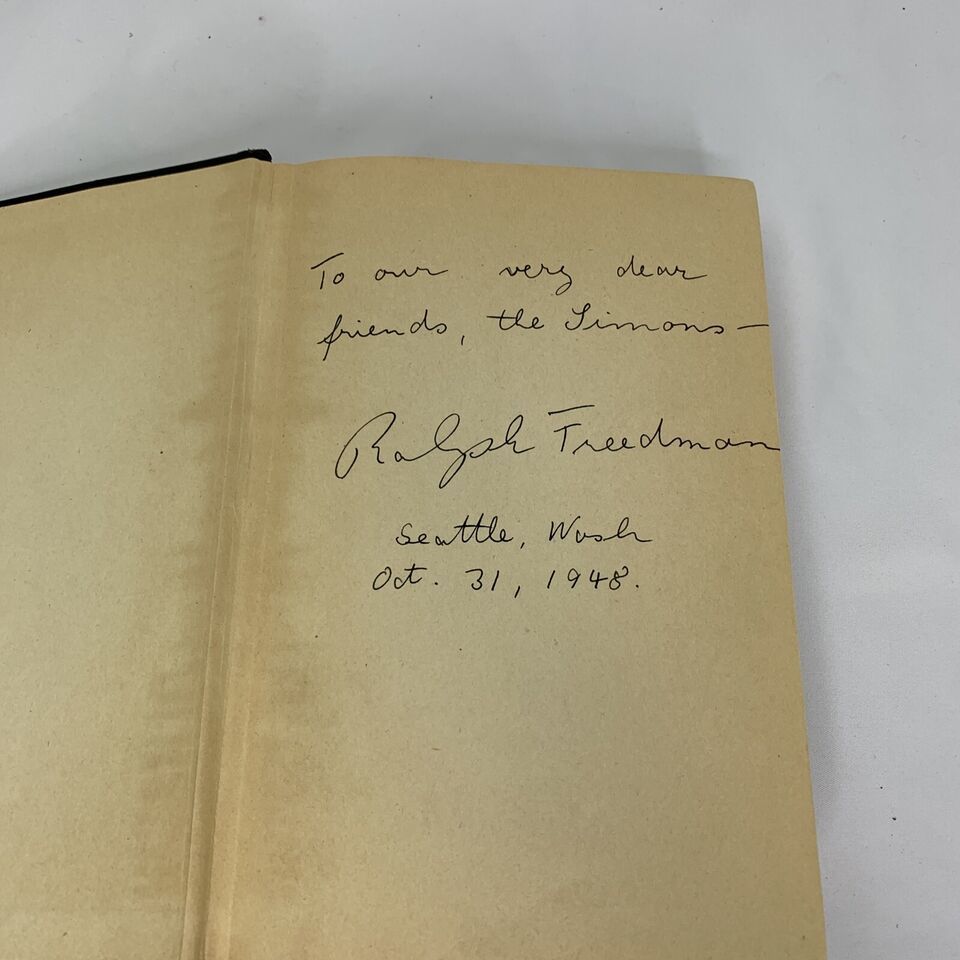 To our very dear
friends, the Simons—
Ralph Freedman
Seattle, Wash
Oct. 31, 1948.